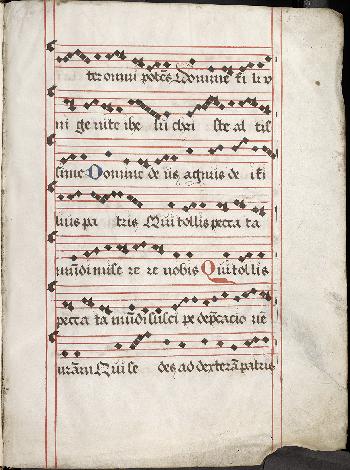 ter omni potēs Domine fi li v
ni ge nite ihe su chri ste al tis
sime Domine de us agnus de i fi
lius pa tris Qui tollis pecca ta
mūdi mise re re nobis Qui tollis
pecca ta mūdi susci pe dep̄catio nē
nrām Qui se des ad dexterā patris